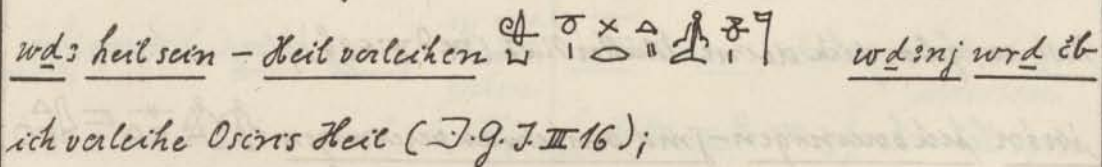 wḏ: heil sein – Heil verleihen wḏ:nj wrḏ ib
ich verleihe Osiris Heil (J.G.J. III 16);